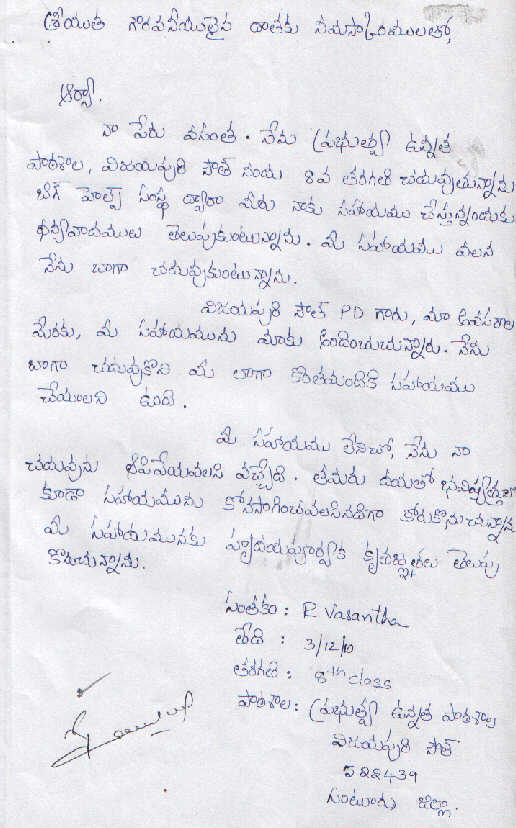 శ్రీయుత గౌరవనీయులైన దాతకు నమస్కారములతో,
ఆర్యా,
నా పేరు వసంత. నేను ప్రభుత్వ ఉన్నత
పాఠశాల, విజయపురి సౌత్ నందు 8వ తరగతి చదువుతున్నాను
బిగ్ హెల్ప్ సంస్థ ద్వారా మీరు నాకు సహాయము చేస్తున్నందుకు
ధన్యవాదములు తెలుపుకుంటున్నాను. మీ సహాయము వలన
నేను బాగా చదువుకుంటున్నాను.
విజయపురి సౌత్ PD గారు, మా అవసరాల
మేరకు, మీ సహాయమును మాకు అందించుచున్నారు. నేను
బాగా చదువుకొని మీ లాగా కొంతమందికి సహాయము
చేయాలని ఉంది.
మీ సహాయము లేనిచో, నేను నా
చదువును ఆపివేయవలసి వచ్చేది. తమరు దయతో భవిష్యత్తులో
కూడా సహాయమును కొనసాగించవలసినదిగా కోరుకొనుచున్నాను
మీ సహాయమునకు హృదయపూర్వక కృతజ్ఞతలు తెలుపు
కొనుచున్నాను.
సంతకం : R Vasantha
తేది : 3/12/10
తరగతి : 8th class
పాఠశాల : ప్రభుత్వ ఉన్నత పాఠశాల
విజయపురి సౌత్
522439
గుంటూరు జిల్లా.